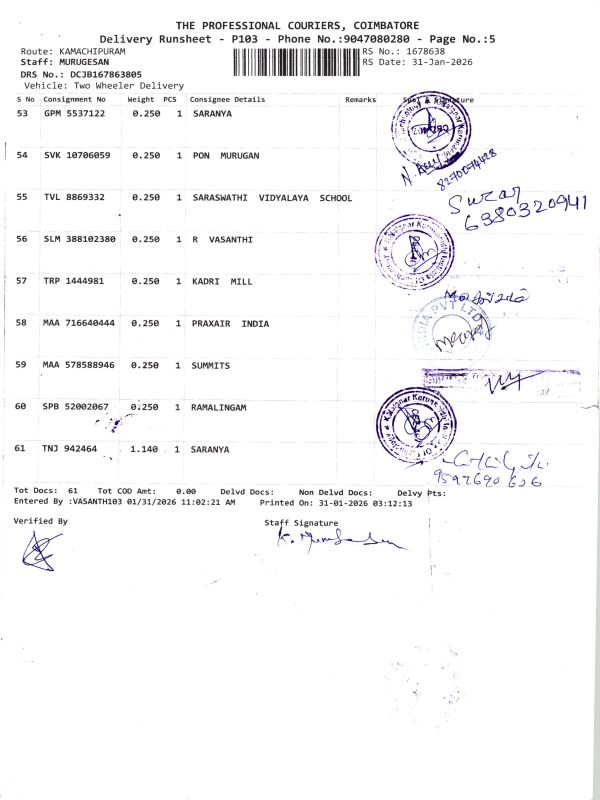 THE PROFESSIONAL COURIERS, COIMBATORE
Delivery Runsheet - P103 - Phone No.:9047080280 - Page No.:5
Route: KAMACHIPURAM RS No.: 1678638
Staff: MURUGESAN RS Date: 31-Jan-2026
DRS No.: DCJB167863805
Vehicle: Two Wheeler Delivery
S No Consignment No Weight PCS Consignee Details Remarks Signature
53 GPM 5537122 0.250 1 SARANYA
54 SVK 10706059 0.250 1 PON MURUGAN
8270074428
55 TVL 8869332 0.250 1 SARASWATHI VIDYALAYA SCHOOL
6380320941
56 SLM 388102380 0.250 1 R VASANTHI
57 TRP 1444981 0.250 1 KADRI MILL
58 MAA 716640444 0.250 1 PRAXAIR INDIA
59 MAA 578588946 0.250 1 SUMMITS
60 SPB 52002067 0.250 1 RAMALINGAM
61 TNJ 942464 1.140 1 SARANYA
Tot Docs: 61 Tot COD Amt: 0.00 Delvd Docs: Non Delvd Docs: Delvy Pts:
Entered By :VASANTH103 01/31/2026 11:02:21 AM Printed On: 31-01-2026 03:12:13
Verified By Staff Signature